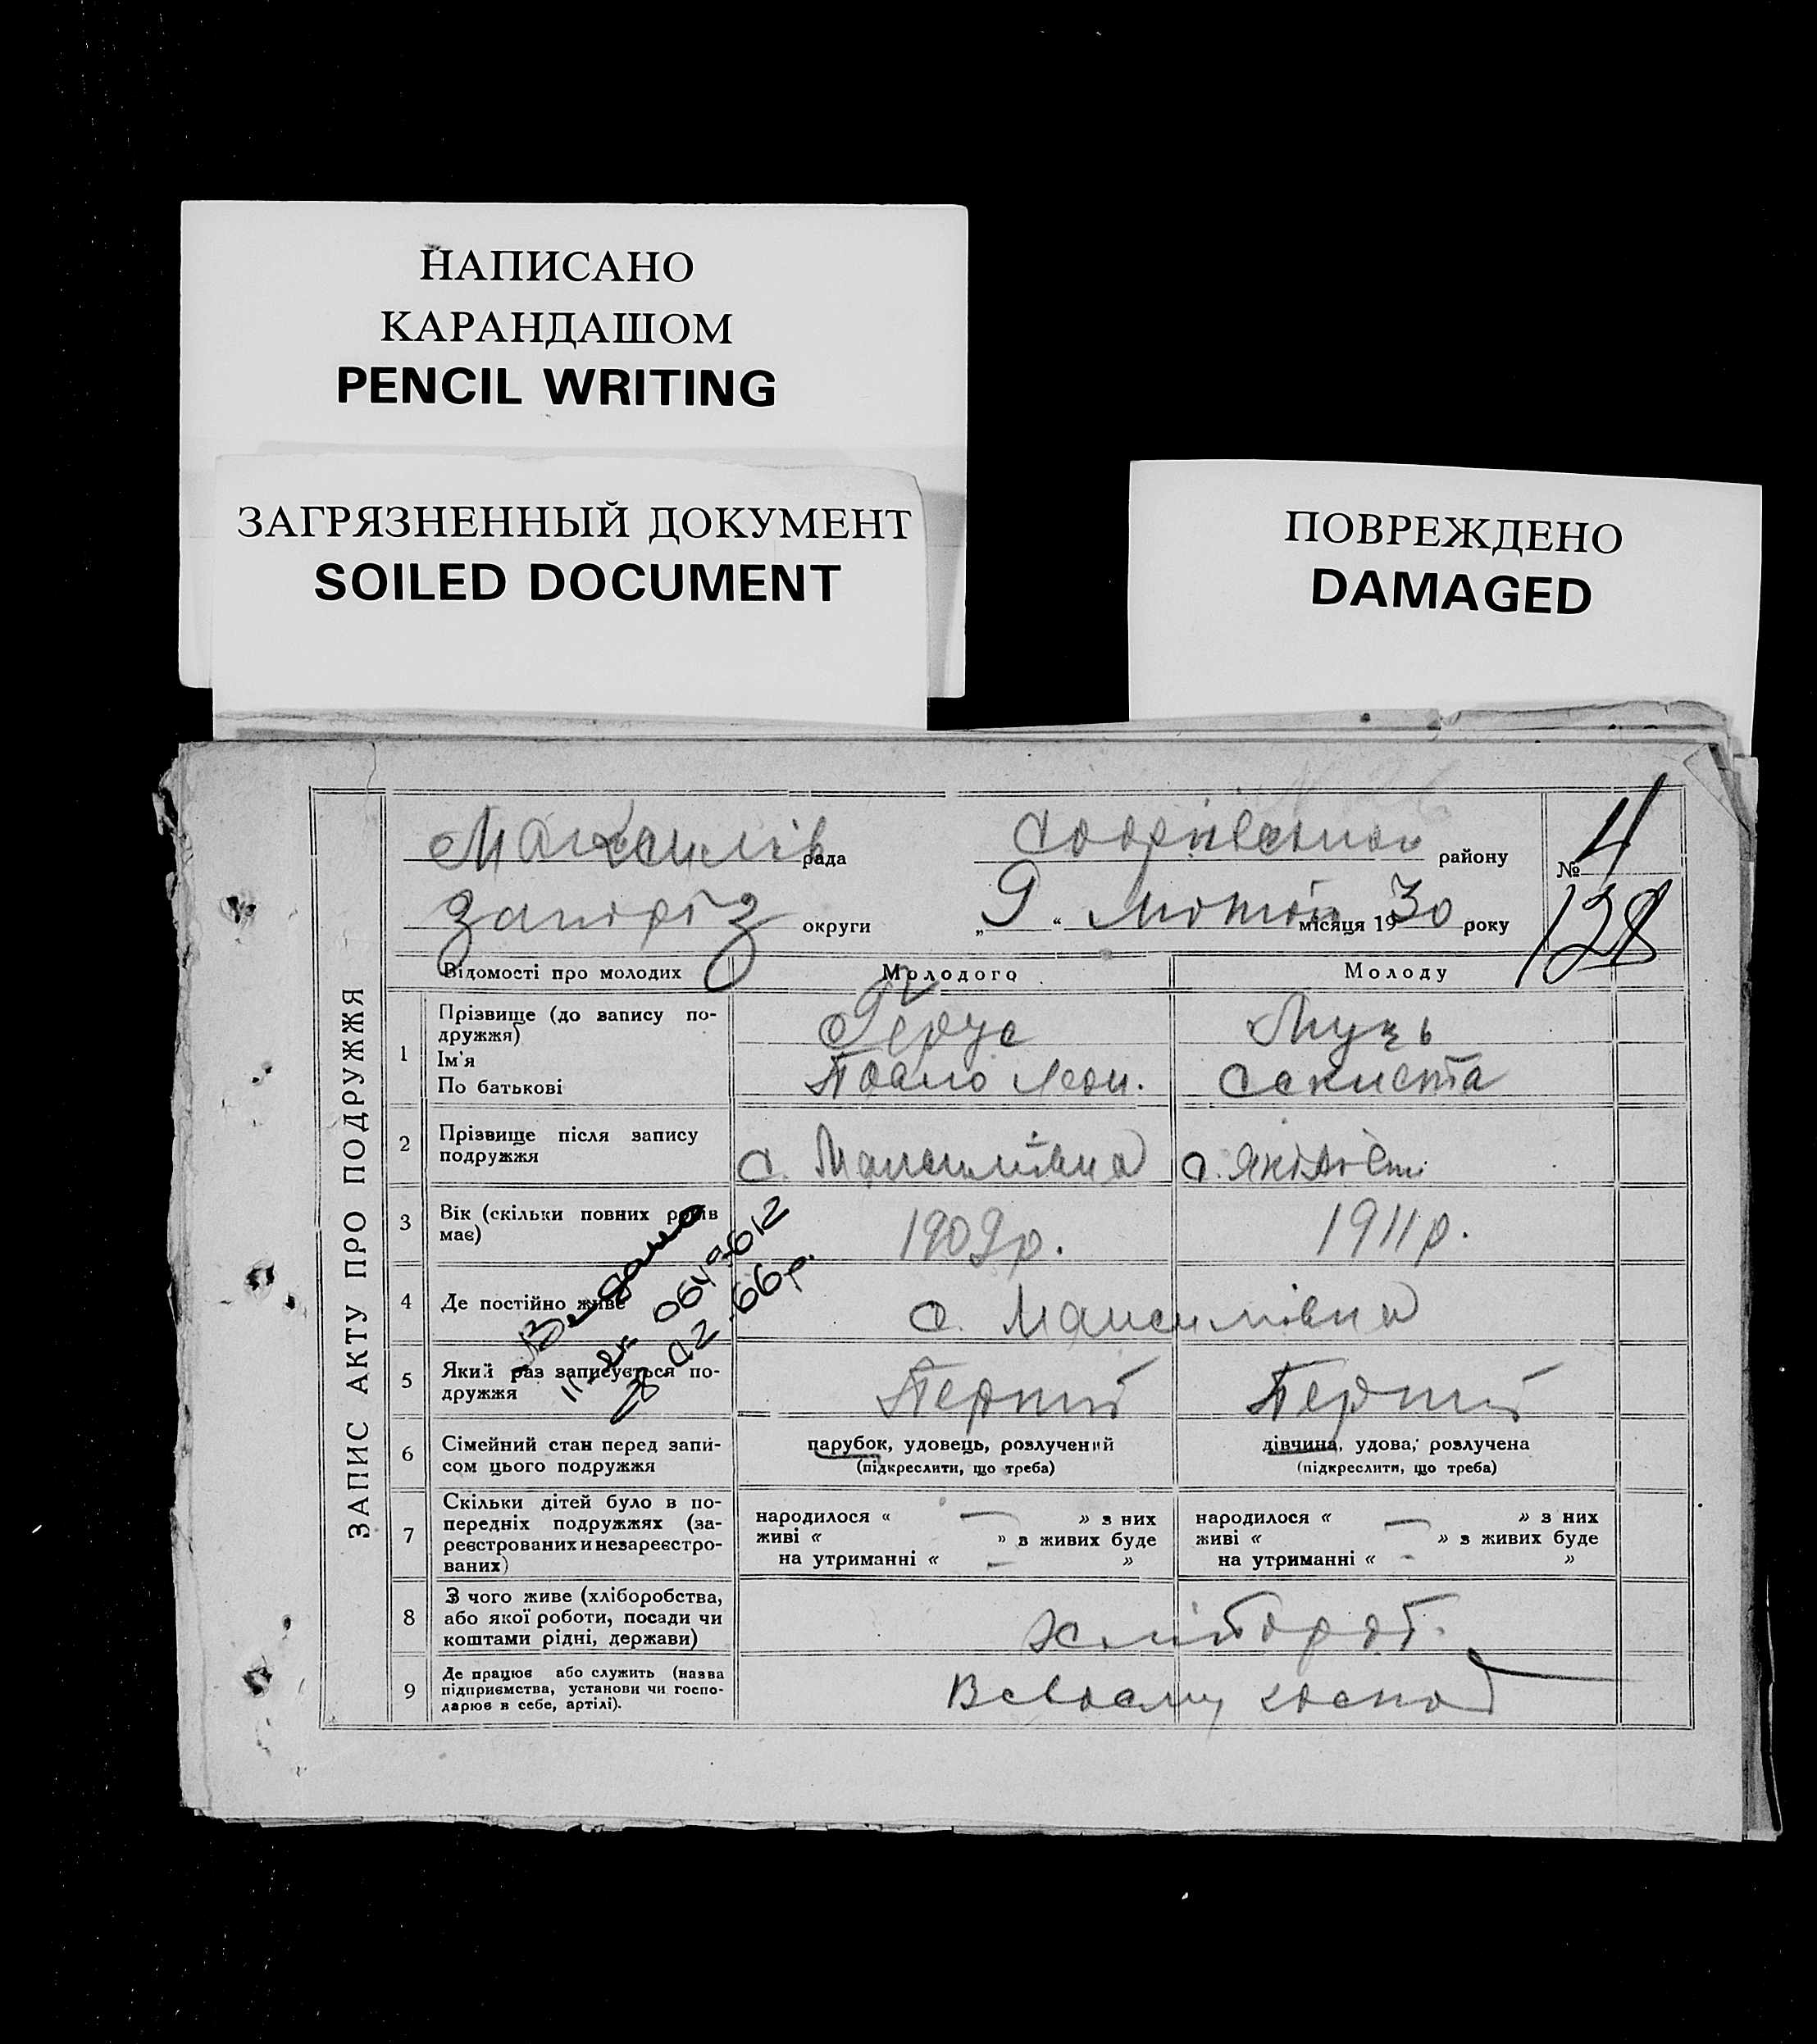 НАПИСАНО
КАРАНДАШОМ
PENCIL WRITING
ЗАГРЯЗНЕННЫЙ ДОКУМЕНТ
SOILED DOCUMENT
ПОВРЕЖДЕНО
DAMAGED
ЗАПИС АКТУ ПРО ПОДРУЖЖЯ
Максимів рада району № 4
Запоріз округи „9“ місяця 1930 року 128
Відомості про молодих Молодого Молоду
1 Прізвище (до запису по-
дружжя)
Ім'я
По батькові
Герус Муць
Павло
2 Прізвище після запису
подружжя
с. Максимівка с.
3 Вік (скільки повних років
має)
1909р. 1911р.
4 Де постійно живе
с. Максимівка
Видано
66р.
5 Який раз записується по-
дружжя
Перший Перший
6 Сімейний стан перед запи-
сом цього подружжя
парубок, удовець, розлучений
(підкреслити, що треба)
дівчина, удова, розлучена
(підкреслити, що треба)
7 Скільки дітей було в по-
передніх подружжях (за-
реєстрованих и незареєстро-
ваних)
народилося « — » з них
живі « » з живих буде
на утриманні « — »
народилося « — » з них
живі « » з живих буде
на утриманні « - »
8 З чого живе (хліборобства,
або якої роботи, посади чи
коштами рідні, держави)
хлібороб.
9 Де працює або служить (назва
підприємства, установи чи госпо-
дарює в себе, артілі).
В своему господ